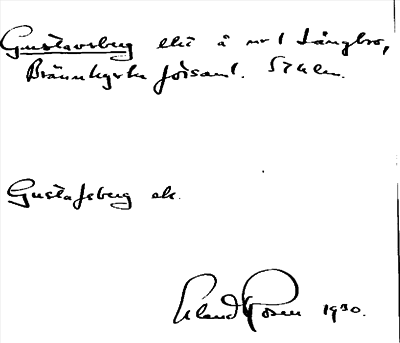 Gustavsberg ekt å nr 1 Långbro,
Brännkyrka förs:aml. Sthlm.
Gustafsberg ek.
Erland Rosen 1930.